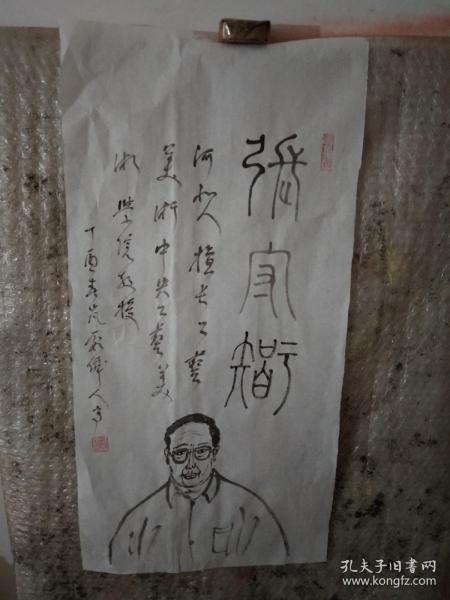 張守智
河北人擅长工藝
美術中央工藝美
術學院教授
丁酉春
孔夫子旧书网
www.kongfz.com